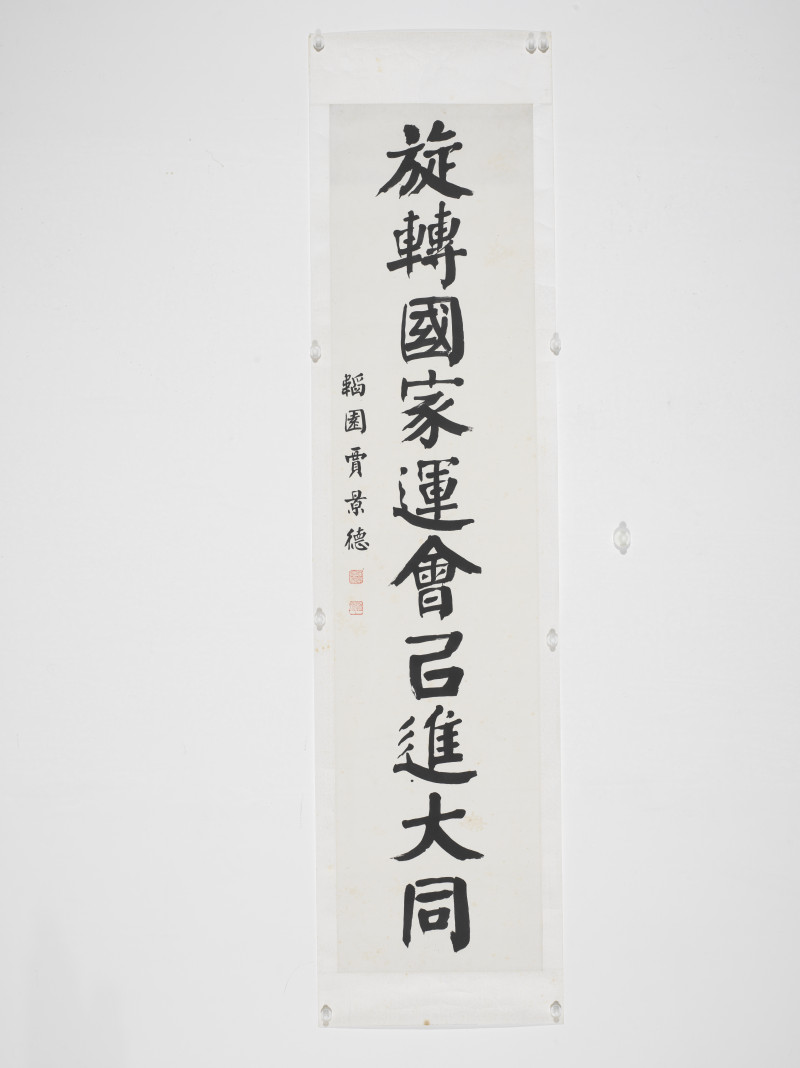 旋轉國家運會㠯進大同
韜園賈景德